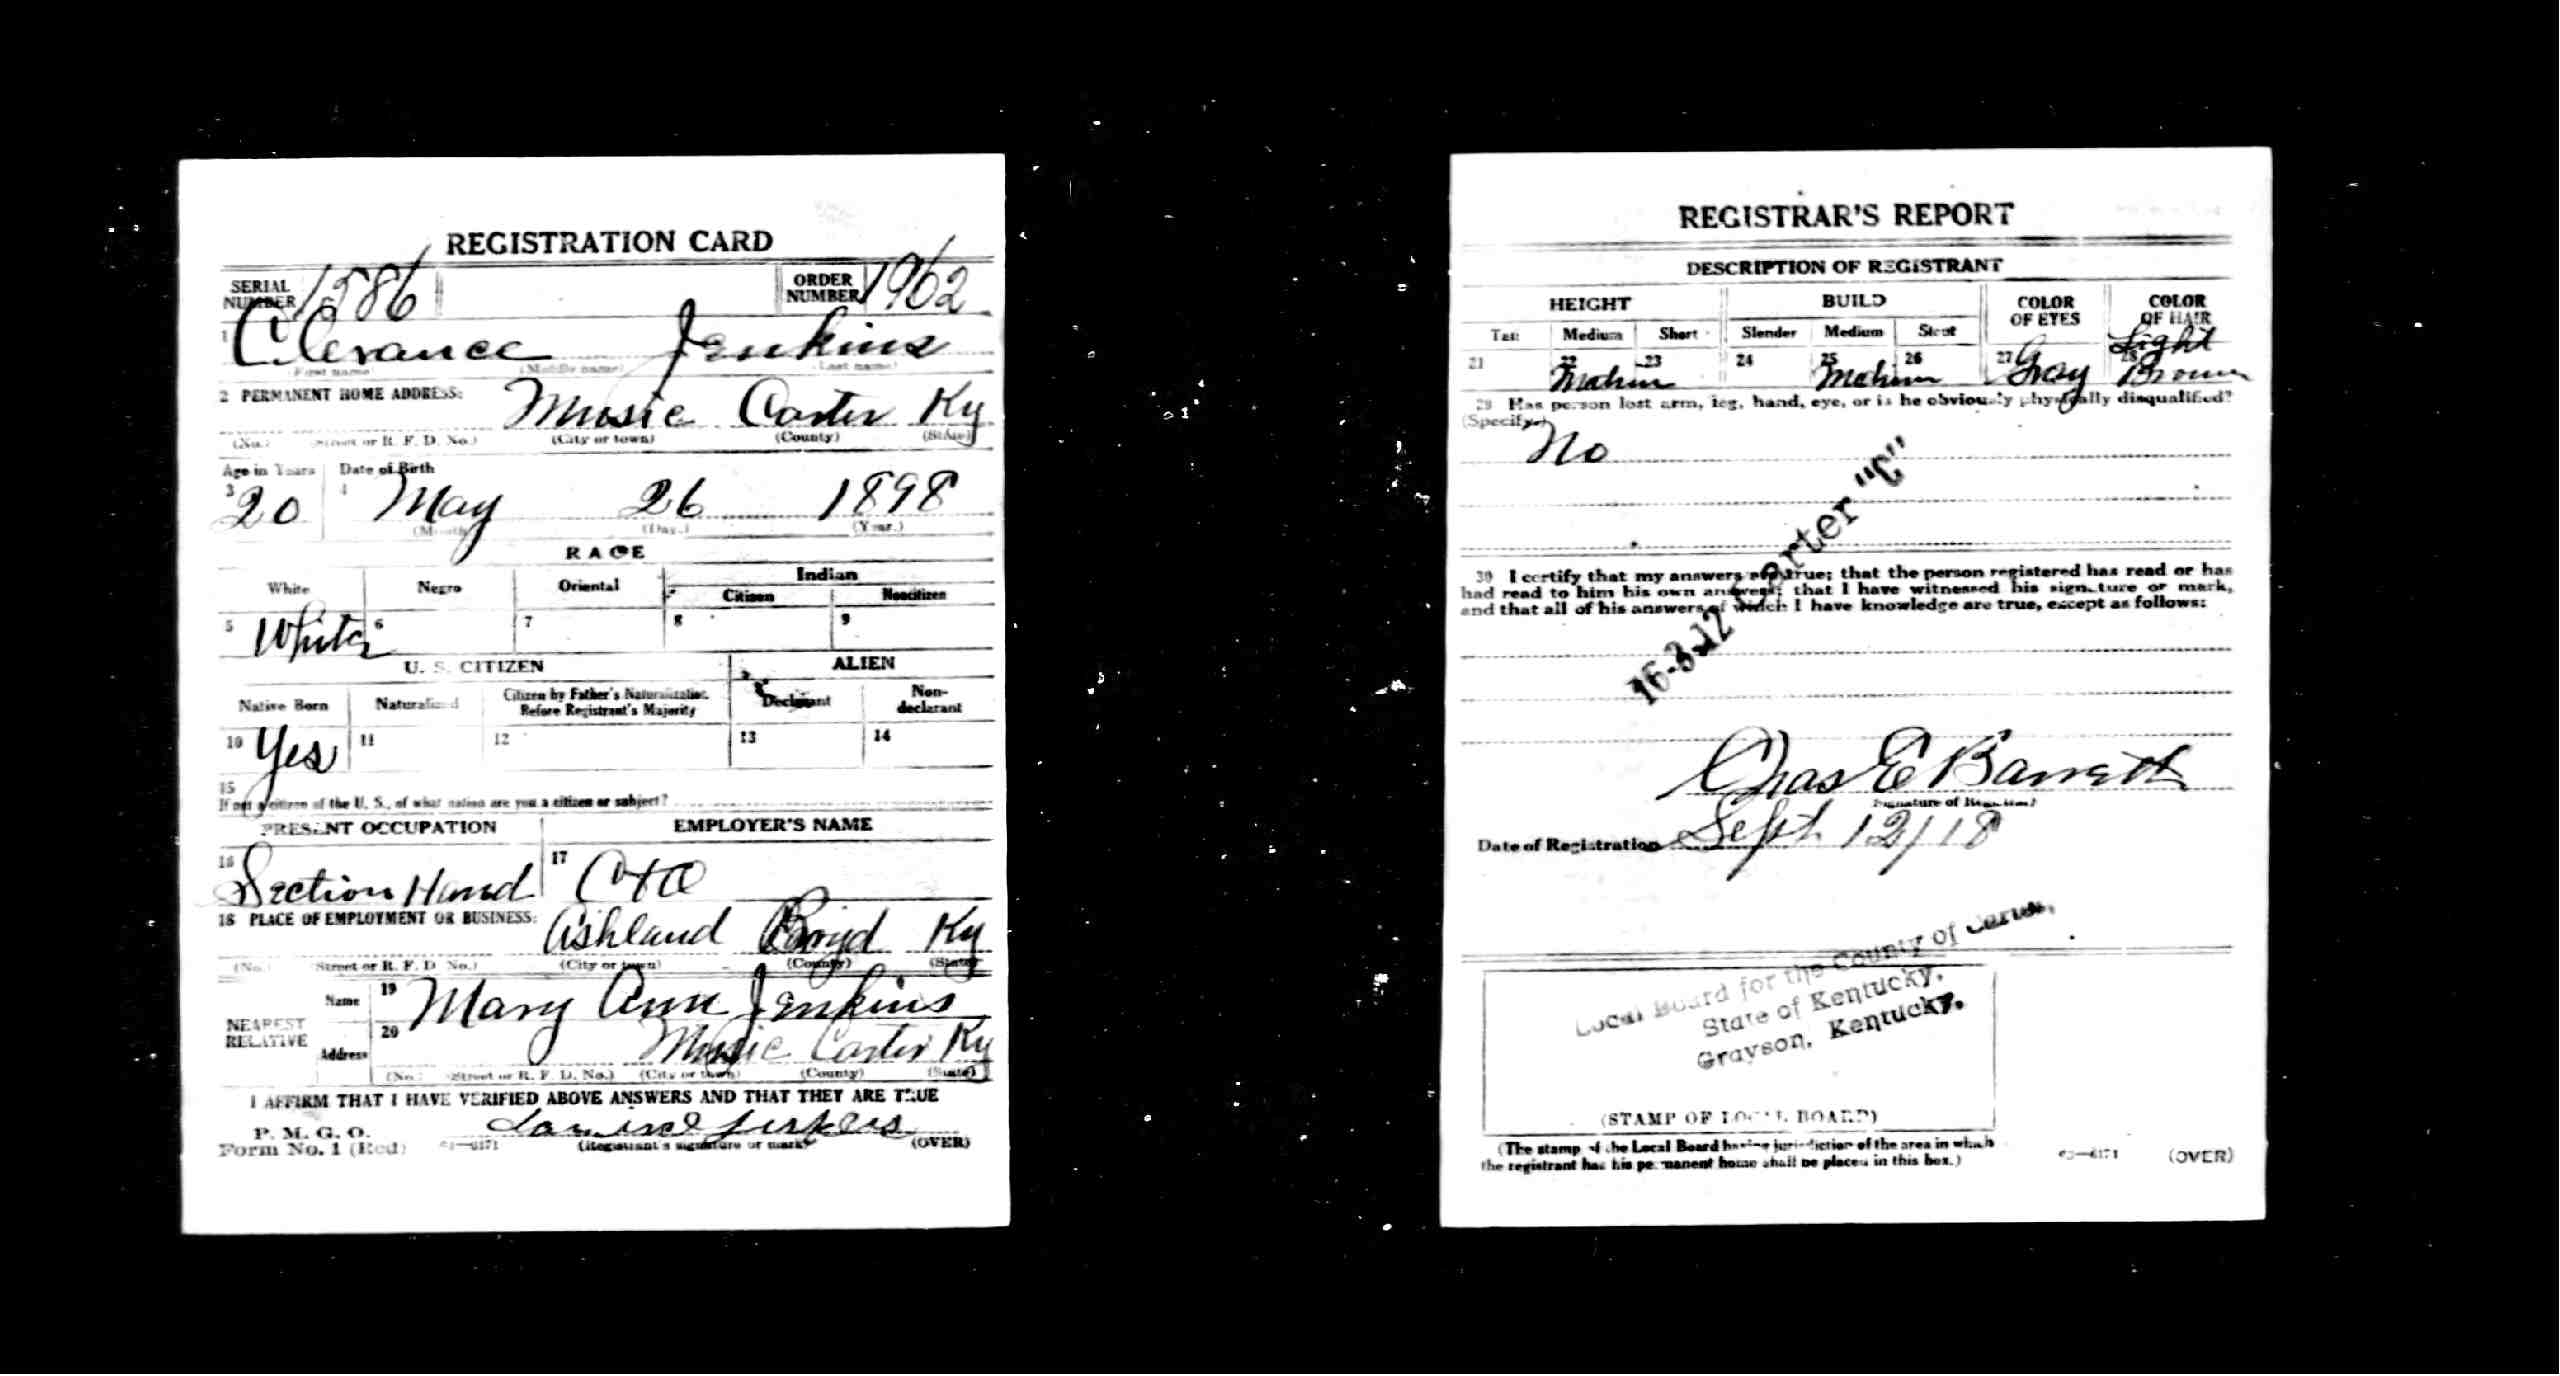 REGISTRATION CARD
SERIAL NUMBER 1586 ORDER NUMBER 1962
1 Clerance Jenkins
(First name) (Middle name) (Last name)
2 PERMANENT HOME ADDRESS: Music Carter Ky
(No.) (Street or R. F. D. No.) (City or town) (County) (State)
Age in Years Date of Birth
3 20 4 May 26 1898
(Month) (Day.) (Year.)
RACE
White Negro Oriental Indian
Citizen Noncitizen
5 White 6 7 8 9
U. S. CITIZEN ALIEN
Native Born Naturalized Citizen by Father's Naturalization Before Registrant's Majority Declarant Non-declarant
10 Yes 11 12 13 14
15
If not a citizen of the U. S., of what nation are you a citizen or subject?
PRESENT OCCUPATION EMPLOYER'S NAME
16 Section Hand 17 C+O
18 PLACE OF EMPLOYMENT OR BUSINESS: Ashland Boyd Ky
(No.) (Street or R. F. D. No.) (City or town) (County) (State)
NEAREST RELATIVE Name 19 Mary Ann Jenkins
Address 20 Music Carter Ky
(No.) (Street or R. F. D. No.) (City or town) (County) (State)
I AFFIRM THAT I HAVE VERIFIED ABOVE ANSWERS AND THAT THEY ARE TRUE
P. M. G. O.
Form No. 1 (Red) (Registrant's signature or mark) (OVER)
REGISTRAR'S REPORT
DESCRIPTION OF REGISTRANT
HEIGHT BUILD COLOR OF EYES COLOR OF HAIR
Tall Medium Short Slender Medium Stout
21 22 23 24 25 26 27 Gray 28 Light Brown
29 Has person lost arm, leg, hand, eye, or is he obviously physically disqualified?
(Specify.) No
16-3-12 Carter "C"
30 I certify that my answers are true; that the person registered has read or has
had read to him his own answers; that I have witnessed his signature or mark,
and that all of his answers of which I have knowledge are true, except as follows:
Chas E Barrett
(Signature of Registrar)
Date of Registration Sept 12/18
Local Board for the County of Carter,
State of Kentucky,
Grayson, Kentucky.
(STAMP OF LOCAL BOARD)
(The stamp of the Local Board having jurisdiction of the area in which
the registrant has his permanent home shall be placed in this box.)
(OVER)